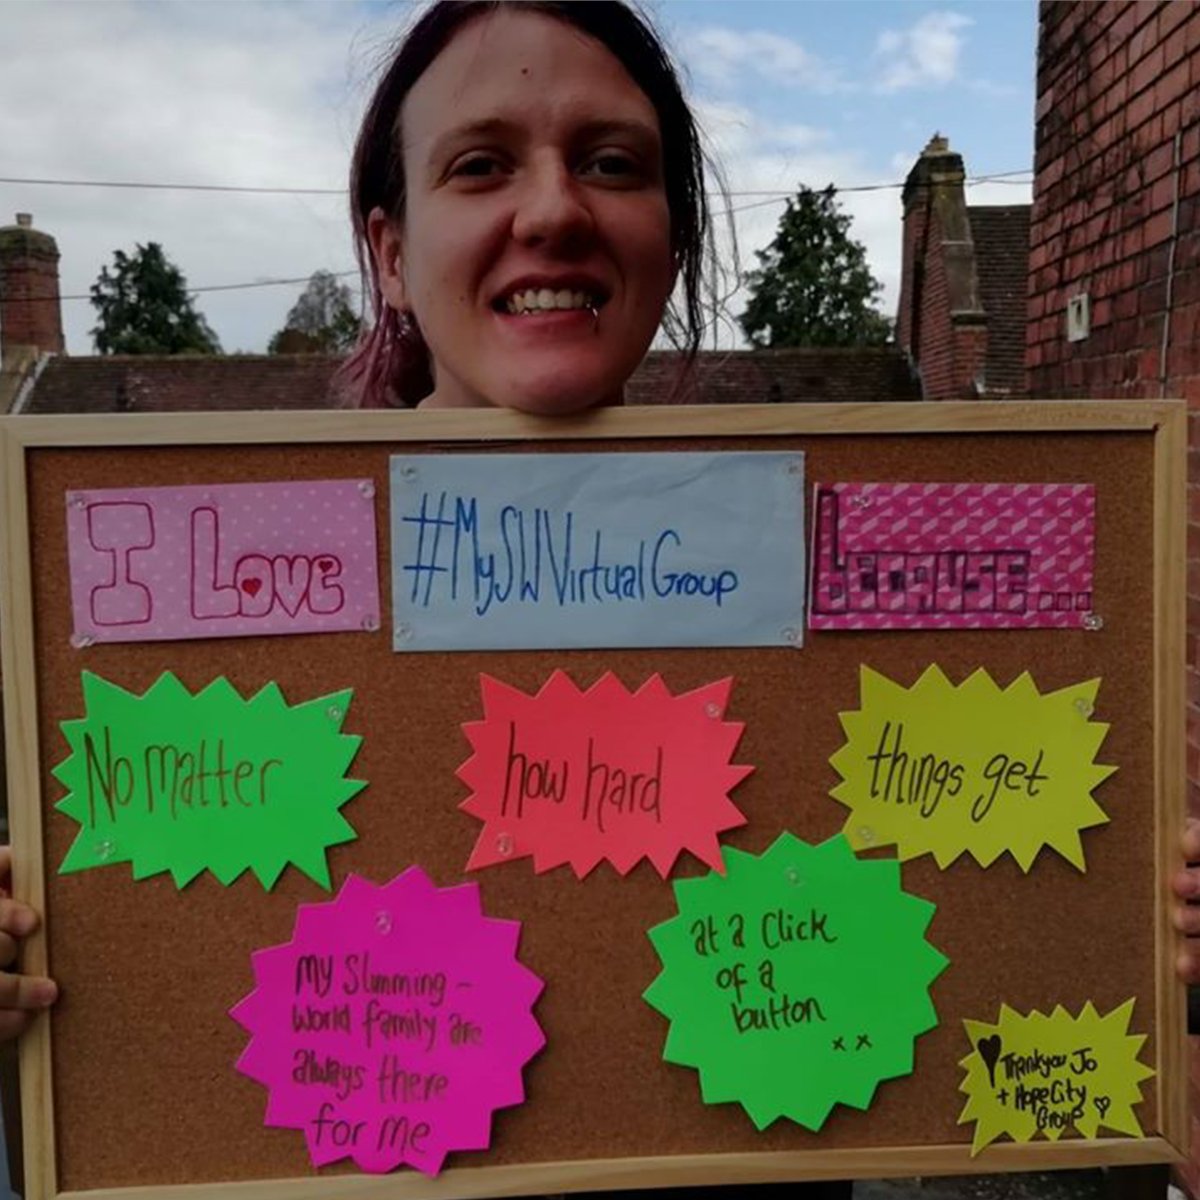 I Love
#MySWVirtualGroup
because...
No matter
how hard
things get
My Slimming -
World family are
always there
for me
at a Click
of a
button
x x
Thankyou Jo
+ HopeCity
Group